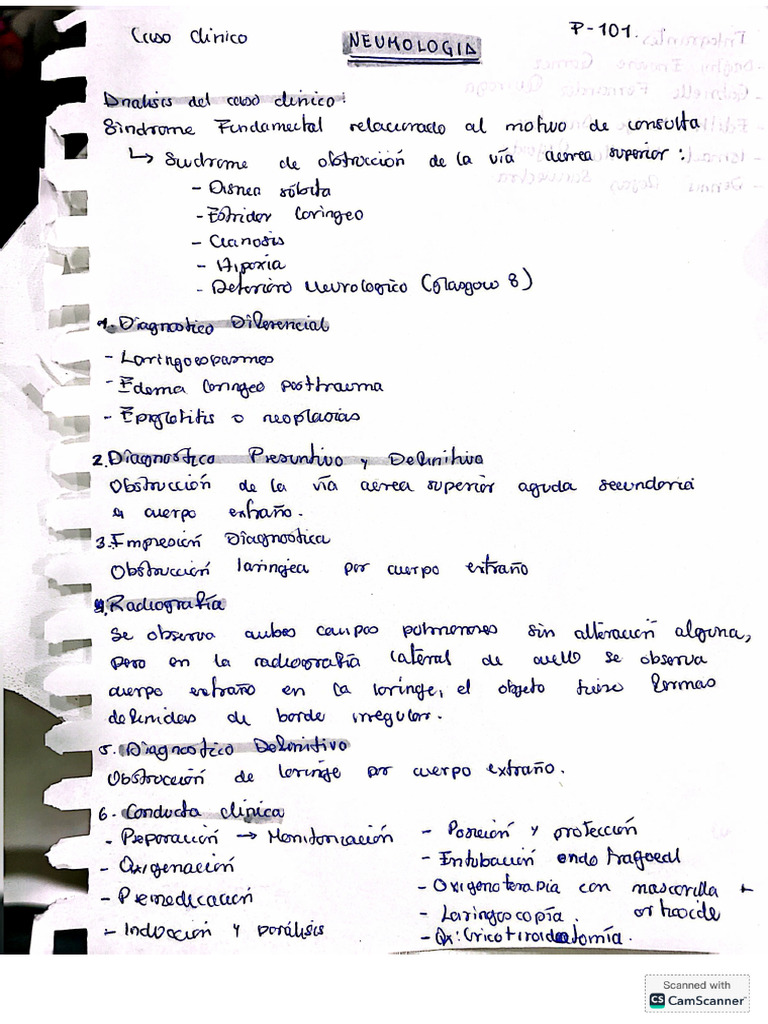 Caso clinico
NEUMOLOGIA
P-101.
Analisis del caso clinico:
Sindrome Fundamental relacionado al motivo de consulta
↳ Sindrome de obstrucción de la vía aerea superior:
- Disnea súbita
- Estridor laringeo
- Cianosis
- Hipoxia
- Deterioro Neurologico (Glasgow 8)
1. Diagnostico Diferencial
- Laringoespasmos
- Edema laringeo posttrauma
- Epiglotitis o neoplasias
2. Diagnostico Presuntivo y Definitivo
Obstrucción de la vía aérea superior aguda secundaria
a cuerpo extraño.
3. Impresión Diagnostica
Obstrucción laringea por cuerpo extraño
4. Radiografía
Se observa ambos campos pulmonares sin alteración alguna,
pero en la radiografía lateral de cuello se observa
cuerpo extraño en la laringe, el objeto tiene formas
definidas de borde irregular.
5. Diagnostico Definitivo
Obstrucción de laringe por cuerpo extraño.
6. Conducta clínica
- Preparación → Monitorización
- Oxigenación
- Premedicación
- Inducción y parálisis
- Posición y protección
- Entubación endotraqueal
- Oxigenoterapia con mascarilla +
- Laringoscopía.
- Qx: Cricotiroidotomía.
Scanned with
CS CamScanner